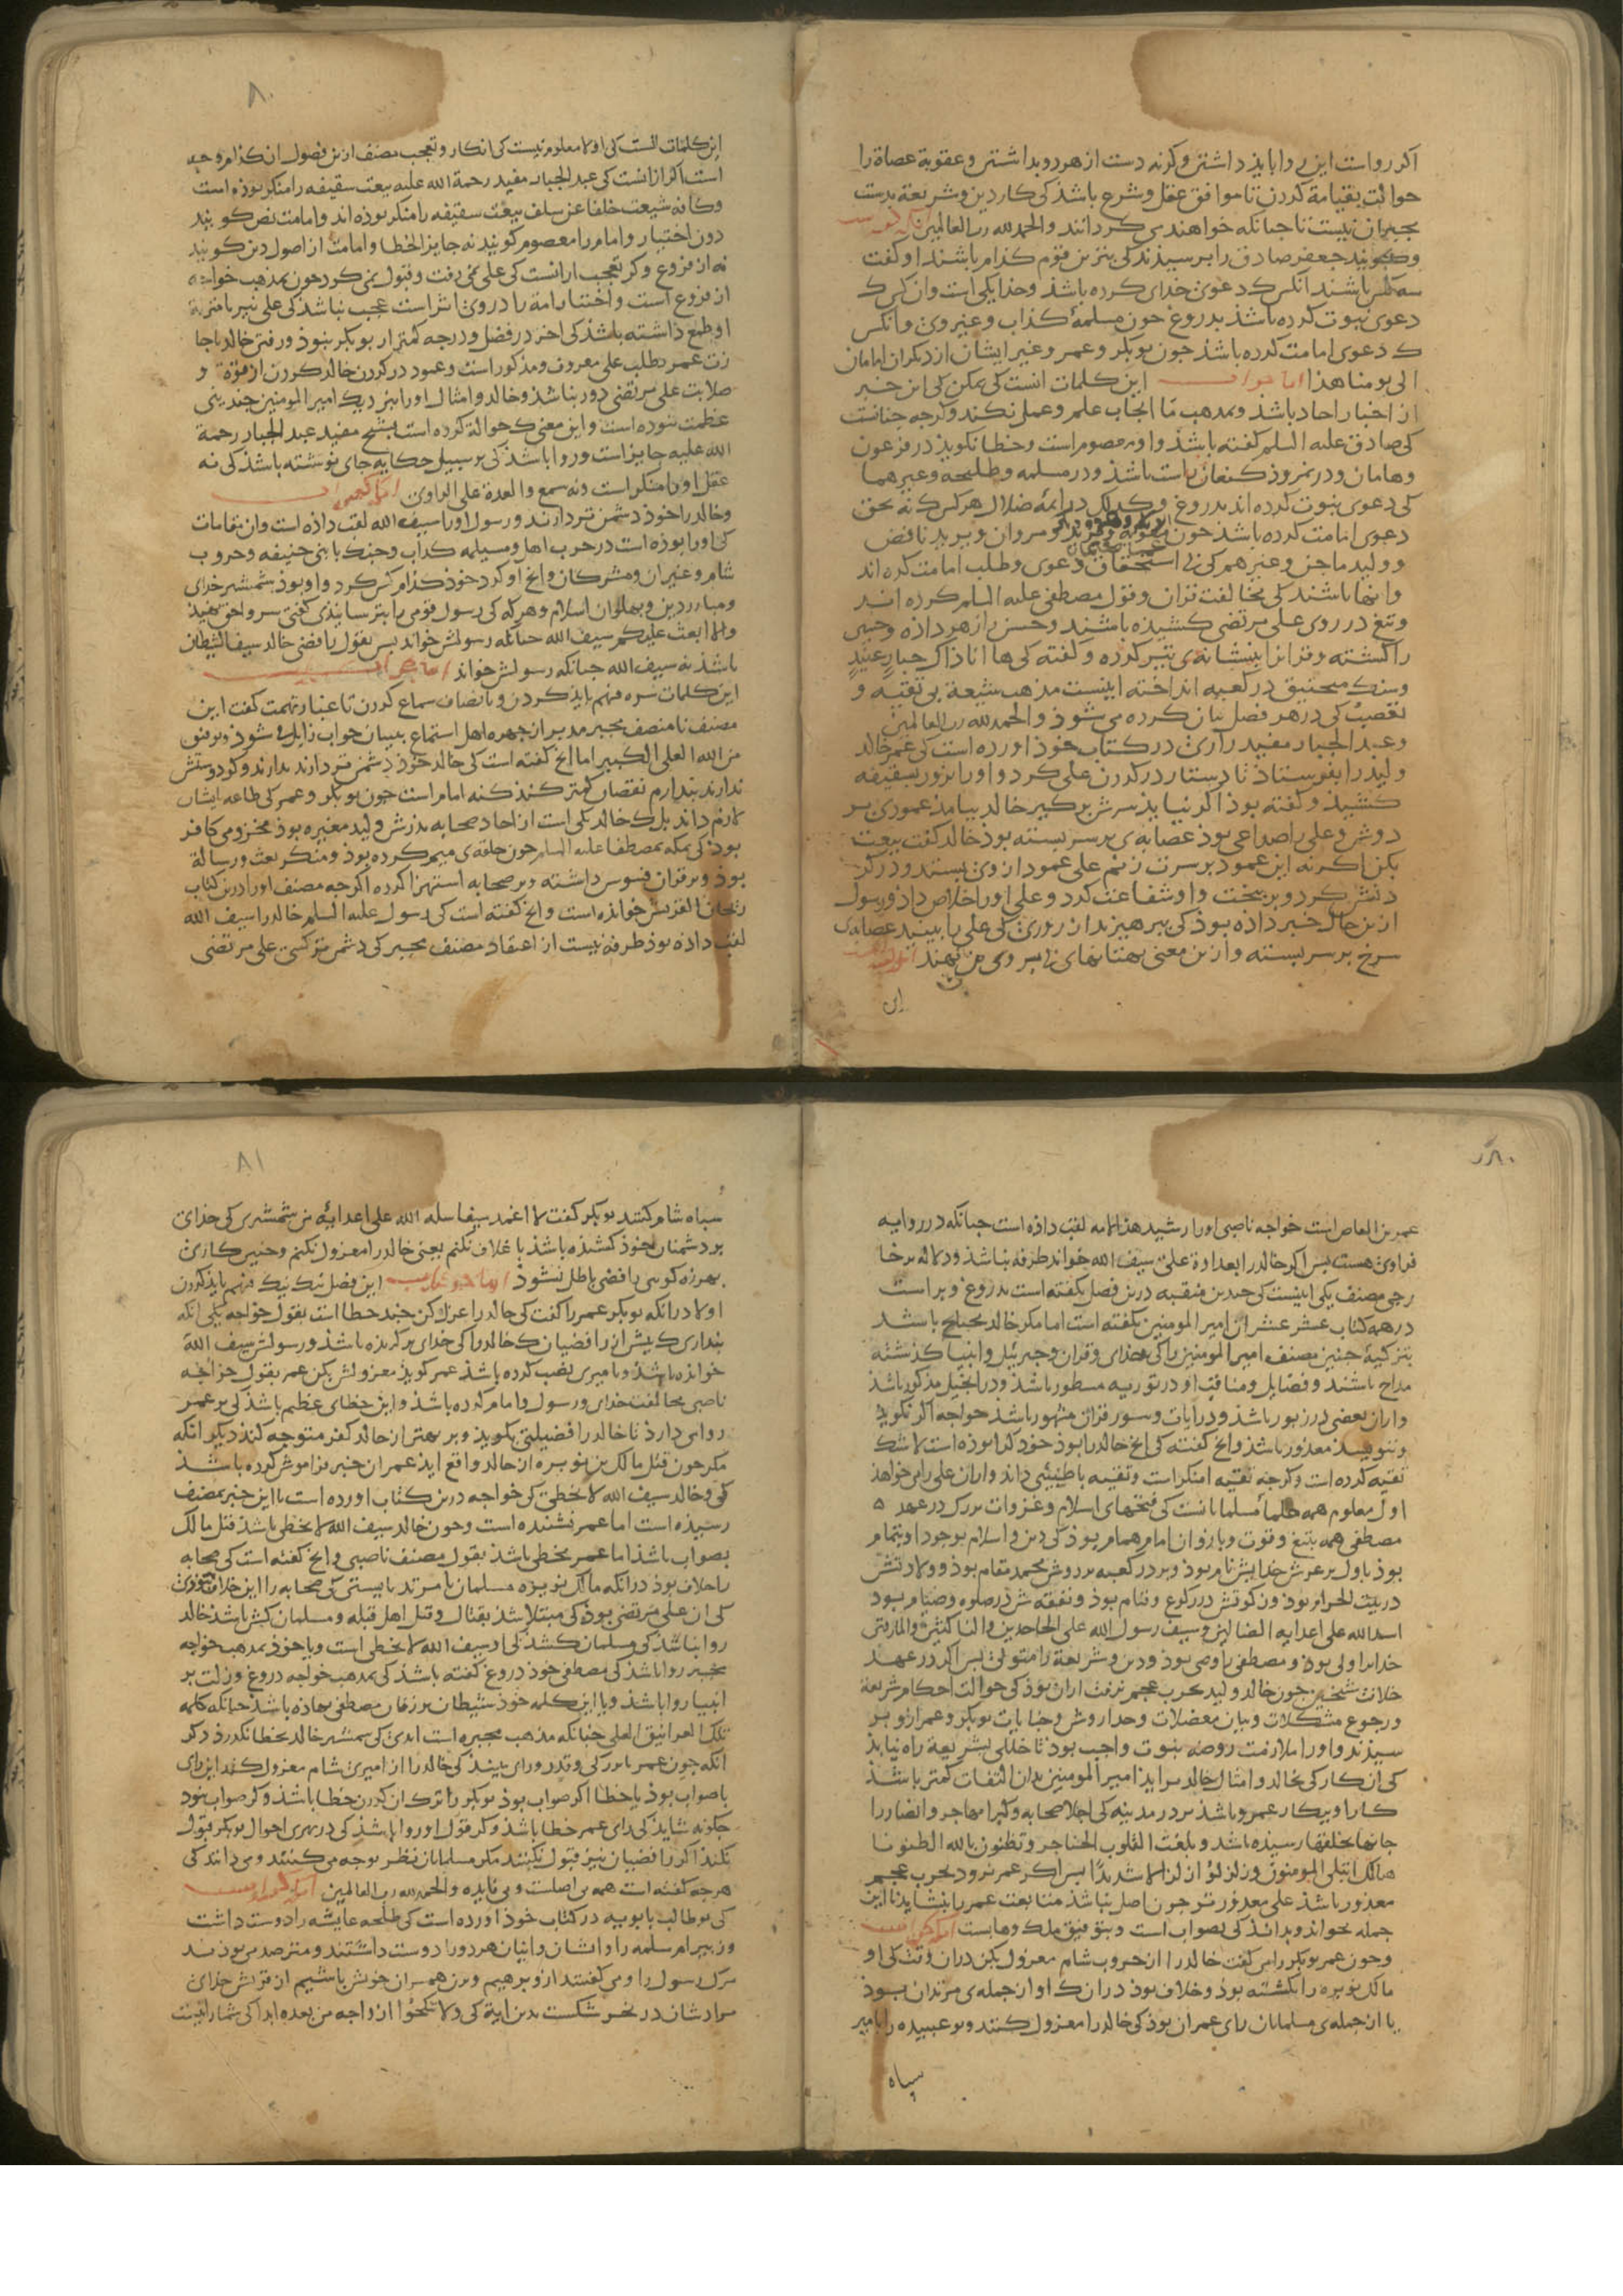 اکر رواست این را بایذ داشتن وکرنه دست از هر دو بداشتن وعقوبة عصاة را
حوالت بقیامة کردن تا موافق عقل و شرع باشذ کی کار دین و شریعة بدست
مجبران نیست تا جنانکه خواهند می کردانند والحمدلله رب العالمین
وکویند جعفر صادق را برسیذند کی بتزین قوم کذام باشند او کفت
سه کس باشند آنکس که دعوی خذای کرده باشذ وخذا یکی است وآن کس که
دعوی نبوت کرده باشذ بدروغ جون مسلمهٔ کذاب وغیر وی وآنکس
که دعوی امامت کرده باشذ جون بوبکر وعمر وغیر ایشان از دیکران امامان
الی یومنا هذا اما جواب این کلمات آنست کی ممکن کی این خبر
از اخبار احاد باشذ وبمذهب ما ایجاب علم وعمل نکند وکرجه جنانست
کی صادق علیه السلم کفته باشذ واو معصوم است وخطا نکویذ در فرعون
وهامان ودر نمروذ کنعان راست باشذ ودر مسلمه وطلیحه وغیرهما
کی دعوی نبوت کرده اند بدروغ وکذلک در ایمهٔ ضلال هر کس که نه بحق
دعوی امامت کرده باشذ جون معویه ویزید ومروان ویزید ناقص
وولید ماجن وغیرهم کی بی استحقاق دعوی وطلب امامت کرده اند
واینها باشند کی مخالفت قران وقول مصطفی علیه السلم کرده اند
وتیغ در روی علی مرتضی کشیذه باشند وحسن را زهر داذه وحسین
را کشته وقران را نشانه‌ی تیر کرده وکفته کی ها انا ذاک جبار عنید
وسنک منجنیق در کعبه انداخته اینست مذهب شیعة بی تقیه و
تعصب کی در هر فصل بیان کرده می شوذ والحمدلله رب العالمین
وعبد الجبار مفید رازی در کتاب خوذ اورده است کی عمر خالد
ولید را بفرستاذ تا دستار در کردن علی کرد و او را بزور بسقیفه
کشیذ وکفته بوذ اکر نیایذ سرش برکیر خالد بیامذ عموذی بر
دوش وعلی را صداعی بوذ عصابه‌ی بر سر بسته بوذ خالد کفت بیعت
بکن اکر نه این عمود بر سرت زنم علی عمود از وی بستد ودر کر
دنش کرد وبر بیخت واو شفاعت کرد وعلی او را خلاص داذ ورسول
ازین حال خبر داذه بوذ کی ببرهیزید از روزی کی علی را بینید عصابه‌ی
سرخ بر سر بسته وازین معنی بهتانهای بی سر وی بن نهند
این
این کلمات آنست کی اولا معلوم نیست کی انکار وتعجب مصنف ازین فصول از کذام وجه
است اکر از انست کی عبد الجبار مفید رحمة الله علیه بیعت سقیفه را منکر بوذه است
وکافه شیعت خلفا عن سلف بیعت سقیفه را منکر بوذه اند وامامت نص کویند
دون اختیار وامام را معصوم کویند نه جایز الخطا وامامت از اصول دین کویند
نه از فروع وکر تعجب از انست کی علی نمی رفت وقبول نمی کرد جون بمذهب خواجه
از فروع است واختیار امة را در وی اثر است عجب نباشذ کی علی نیز با مرتبة
او طمع داشته باشذ کی اخر در فضل ودرجه کمتر از بوبکر نبوذ ورفتن خالد باجا
زت عمر بطلب علی معروف ومذکور است وعمود در کردن خالد کردن از قوة و
صلابت علی مرتضی دور نباشذ وخالد وامثال او را بنزدیک امیر المومنین جندینی
عظمت نبوده است واین معنی که حوالة کرده است بشیخ مفید عبد الجبار رحمة
الله علیه جایز است وروا باشذ کی بر سبیل حکایه جای نوشته باشذ کی نه
عقل او را منکر است ونه سمع والعهدة علی الراوی
وخالد را خوذ دشمن تر دارند ورسول او را سیف الله لقب داذه است وآن مقامات
کی او را بوذه است در حرب اهل ومسیلمه کذاب وجنک با بنی حنیفه وحروب
شام وغیر آن ومشرکان وانج او کرد خوذ کذام کس کرد واو بوذ شمشیر خدای
ومبارز دین وبهلوان اسلام وهر که کی رسول قومی را بترسانیذی کفتی سر واحق نهید
والا ابعث علیکم سیف الله جنانکه رسولش خواند بس بقول رافضی خالد سیف الشیطان
باشذ نه سیف الله جنانکه رسولش خواند اما جواب
این کلمات سره فهم بایذ کردن وبانصاف سماع کردن تا غبار تهمت کفت این
مصنف نامنصف مجبر مدبر از جهره اهل استماع ببیان جواب زایل شوذ وبتوفیق
من الله العلی الکبیر اما انج کفته است کی خالد خوذ دشمن تر دارند بدارند وکر دوستش
ندارند بندارم نقصان کمتر کند کنه امام است جون بوبکر وعمر کی طاعه ایشان
لازم داند بل که خالد یکی است از احاد صحابه بذرش ولید مغیره بوذ مخزومی کافر
بوذ کی بمکه بمصطفا علیه السلم جون حلقه‌ی میم کرده بوذ ومنکر بعث ورسالة
بوذ وبر قران فسوس داشته وبر صحابه استهزا کرده اکرجه مصنف او را درین کتاب
ریحان القریش خوانده است وانج کفته است کی رسول علیه السلم خالد را سیف الله
لقب داذه بوذ طرفه نیست از اعتقاد مصنف مجبر کی دشمن تر کسی علی مرتضی
عمرو بن العاص است خواجه ناصبی او را رشید هذا الامه لقب داذه است جنانکه در روایه
فراوی هست بس اکر خالد را بعداوة علی سیف الله خواند طرفه نباشذ ودلاله بر خا
رجی مصنف یکی اینست کی جندین منقبه درین فصل بکفته است بدروغ وبراست
در همه کتاب عشر عشر آن امیر المومنین نکفته است اما مکر خالد محتاج باشذ
بتزکیهٔ جنین مصنف امیر المومنین را کی خدای وقران وجبرئیل وانبیا کذشته
مداح باشند وفضایل ومناقب او در توریه مسطور باشذ ودر انجیل مذکور باشذ
واران بعضی در زبور باشذ ودر ایات وسور قران مشهور باشذ خواجه اکر نکویذ
وننویسد معذور باشذ وانج کفته کی انج خالد را بوذ خوذ کرا بوذه است لا شک
تقیه کرده است وکرجه تقیه را منکر است وتقیه باطنیی داند واران علی را می خواهذ
اول معلوم همه علماء مسلمانانست کی فتحهای اسلام وغزوات بزرک در عهد
مصطفی همه بتیغ وقوت وبازوان امام همام بوذ کی دین واسلام بوجود او بتمام
بوذ باول بر عرش خدایش نام بوذ وبر در کعبه بر دوش محمد مقام بوذ وولادتش
در بیت الحرام بوذ وزکوتش در رکوع وقیام بوذ ونفقه ش در صلوه وصیام بود
اسد الله علی اعدایه الضالین وسیف رسول الله علی الجاحدین والناکثین والمارقین
خدا را ولی بوذ ومصطفی را وصی بوذ ودین وشریعة را متولی بس اکر در عهد
خلافت شیخین جون خالد ولید بحرب عجم نرفت از ان بوذ کی حوالت احکام شریعة
ورجوع مشکلات وبیان معضلات وحدا روش وجنایات بوبکر وعمر ازو بر
سیذند واو را ملازمت روضه نبوت واجب بوذ تا خللی بشریعة راه نیابذ
کی آن کار کی بخالد وامثال خالد بر آید امیر المومنین بدان التفات کمتر باشذ
کار او بیکار عمرو باشذ بر در مدینه کی اجلا صحابه وکبرا مهاجر وانصار را
جانها بحلقها رسیذه باشد وبلغت القلوب الحناجر وتظنون بالله الظنونا
هنالک ابتلی المومنون وزلزلوا زلزالا شدیدا بس اکر عمر نرود بحرب عجم
معذور باشذ علی معذورتر جون اصل نباشذ متابعت عمر را بنشایذ تا این
جمله بخواند وبداند کی بصواب است وبتوفیق ملک وهابست
وجون عمر بوبکر را می کفت خالد را از حروب شام معزول بکن دران وقت کی او
مالک نویره را بکشته بوذ وخلاف بوذ دران که او از جمله‌ی مرتدان بوذ
یا از جمله‌ی مسلمانان رای عمر ان بوذ کی خالد را معزول کنند وبوعبیده را بامیر
سباه
سباه شام کنند بوبکر کفت لا اغمد سیفا سله الله علی اعدایه من شمشیری کی خذای
بر دشمنان خوذ کشیذه باشذ با غلاف نکنم یعنی خالد را معزول نکنم وجنین کاری
بهرزه کویی رافضی باطل نشوذ اما جواب این فصل نیک نیک فهم بایذ کردن
اولا درانکه بوبکر عمر را کفت کی خالد را عزل کن جند خطا است بقول خواجه یکی انکه
بنداری که بیش از رافضیان که خالد را کی خذای برکزیده باشذ ورسولش سیف الله
خوانده باشذ وبامیری نصب کرده باشذ عمر کویذ معزولش بکن عمر بقول خواجه
ناصبی مخالفت خدای ورسول وامام کرده باشذ واین خطای عظیم باشذ کی بر عمر
روا می دارذ تا خالد را فضیلتی بکویذ وبر بهتر از خالد کفر متوجه کند دیکر انکه
مکر جون قتل مالک بن نویره از خالد واقع آیذ عمر ان خبر فراموش کرده باشذ
کی وخالد سیف الله لا یخطی کر خواجه درین کتاب اورده است یا این خبر بمصنف
رسیذه است اما عمر نشنیده است وجون خالد سیف الله لا یخطی باشذ قتل مالک
بصواب باشذ اما عمر مخطی باشذ بقول مصنف ناصبی وانج کفته است کی صحابه
را خلاف بوذ درانکه مالک نویره مسلمان یا مرتد بایستی کی صحابه را این خلاف نبوذی
کی ان علی مرتضی بوذ کی مبتلا شد بقتال وقتل اهل قبله ومسلمان کش باشذ خالد
روا نباشذ کی مسلمان کشذ کی او سیف الله لا یخطی است ویا خوذ بمذهب خواجه
مجبر روا باشذ کی مصطفی خوذ دروغ کفته باشذ کی بمذهب خواجه دروغ وزلت بر
انبیا روا باشذ ویا این کلمه خوذ شیطان بر زفان مصطفی نهاذه باشذ جنانکه کلمه
تلک الغرانیق العلی جنانکه مذهب مجبره است
انکه جون عمر با بزرکی وقدر ورای بیند کی خالد را از امیری شام معزول کنند این رای
یا صواب بوذ یا خطا اکر صواب بوذ بوبکر را ترک ان کردن خطا باشذ وکر صواب نبود
جکونه شاید کی رای عمر خطا باشذ وکر قول او روا باشذ کی در بهری احوال بوبکر قبول
نکند اکر رافضیان نیز قبول نکنند مکر مسلمانان نظر بوجه می کنند ومی دانند کی
هرجه کفته است همه بی اصلست وبی فایده والحمدلله رب العالمین
کی بوطالب بابویه در کتاب خوذ اورده است کی طلحه عایشه را دوست داشت
وزبیر ام سلمه را واشان وایشان هر دو را دوست داشتند ومترصد می بوذند
مرک رسول را ومی کفتند ازو برهیم وبزن همسران خویش باشیم از فراش خدای
مرادشان در نحر شکست بدین ایة کی ولا تنکحوا ازواجه من بعده ابدا کی شما را نیست